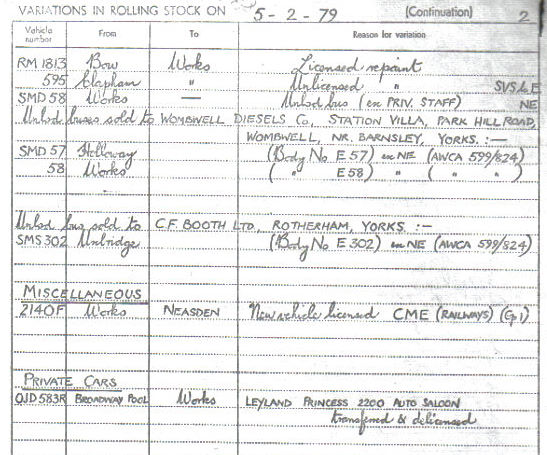 VARIATIONS IN ROLLING STOCK ON 5-2-79 (Continuation) 2
Vehicle number From To Reason for variation
RM 1813 Bow Works Licensed repaint
595 Clapham " Unlicensed " SVS & E
SMD 58 Works — Unlsd bus (ex PRIV. STAFF) NE
Unlsd buses sold to WOMBWELL DIESELS Co, STATION VILLA, PARK HILL ROAD,
WOMBWELL, NR. BARNSLEY, YORKS. :—
SMD 57 Holloway (Body No E 57) ex NE (AWCA 599/824)
58 Works ( " E 58) " ( " " )
Unlsd bus sold to C.F. BOOTH LTD., ROTHERHAM, YORKS. :—
SMS 302 Uxbridge (Body No E 302) ex NE (AWCA 599/824)
MISCELLANEOUS
2140F Works NEASDEN New vehicle licensed CME (RAILWAYS) (Gp 1)
PRIVATE CARS
OJD 583R BROADWAY POOL Works LEYLAND PRINCESS 2200 AUTO SALOON
transferred & delicensed